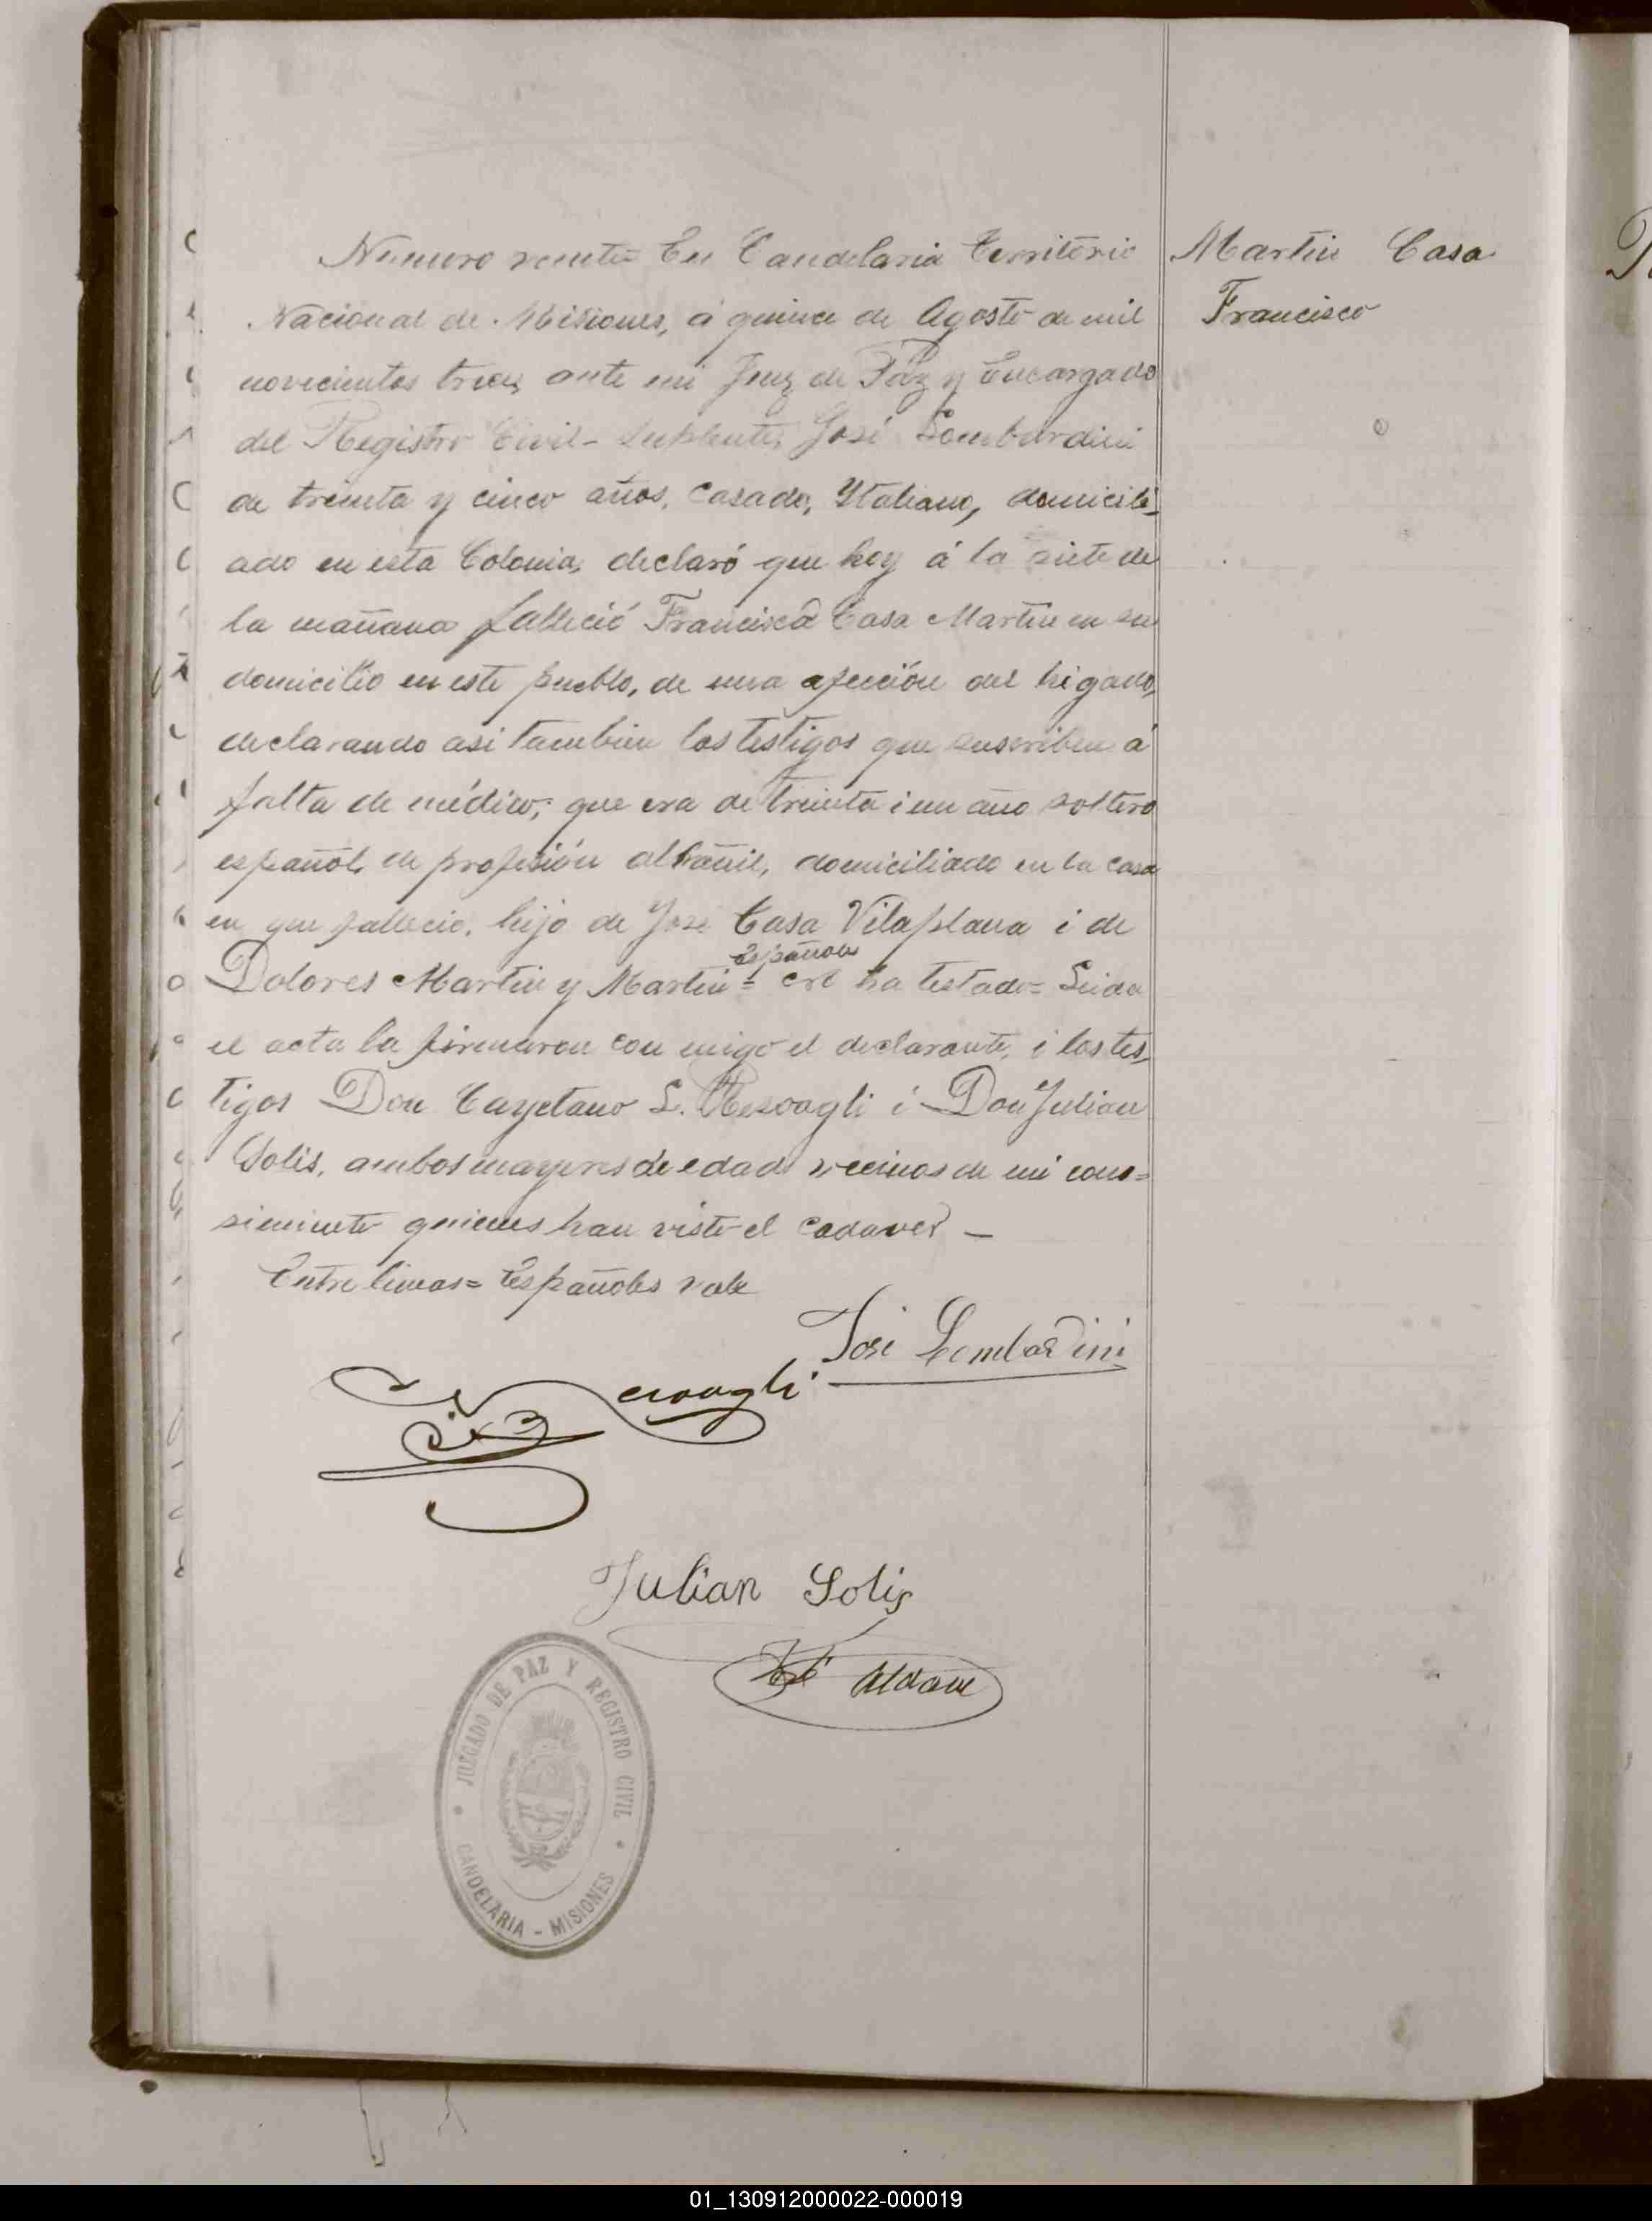 Numero veinte= En Candelaria Territorio
Nacional de Misiones, á quince de Agosto de mil
novecientos tres, ante mi Juez de Paz y Encargado
del Registro Civil- Suplente, José Lombardini
de treinta y cinco años, casado, Ytaliano, domicili-
ado en esta Colonia, declaró que hoy á la siete de
la mañana falleció Francisco Casa Martin en su
domicilio en este pueblo, de una afección del higado,
declarando asi tambien los testigos que suscriben á
falta de médico; que era de treinta i un año soltero
español, de profesión albañil, domiciliado en la casa
en que fallecio, hijo de José Casa Vilaplana i de
Españoles
Dolores Martin y Martin= ha testado= Leida
el acta la firmaron con migo el declarante, i los tes-
tigos Don Cayetano L. i Don Julian
Solis, ambos mayores de edad vecinos de mi cono=
simiento quienes han visto el cadaver —
Entre lineas= Españoles vale
José Lombardini
Julian Solis
Aldave
JUZGADO DE PAZ Y REGISTRO CIVIL
CANDELARIA - MISIONES
Martin Casa
Francisco
01_130912000022-000019